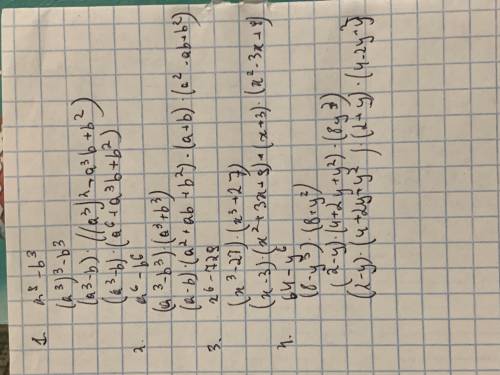 1. a⁸ - b³
(a³)³ - b³
(a³-b)·((a³)²+a³b+b²)
(a³-b)·(a⁶+a³b+b²)
2. a⁶-b⁶
(a³-b³)·(a³+b³)
(a-b)·(a²+ab+b²)·(a+b)·(a²-ab+b²)
3. x⁶-729
(x³-27)·(x³+27)
(x-3)·(x²+3x+9)·(x+3)·(x²-3x+9)
4. 64-y⁶
(8-y³)·(8+y³)
(2-y)·(4+2y+y²)·(8y³)
(2-y)·(4+2y+y²)·(2+y)·(4-2y+y²)